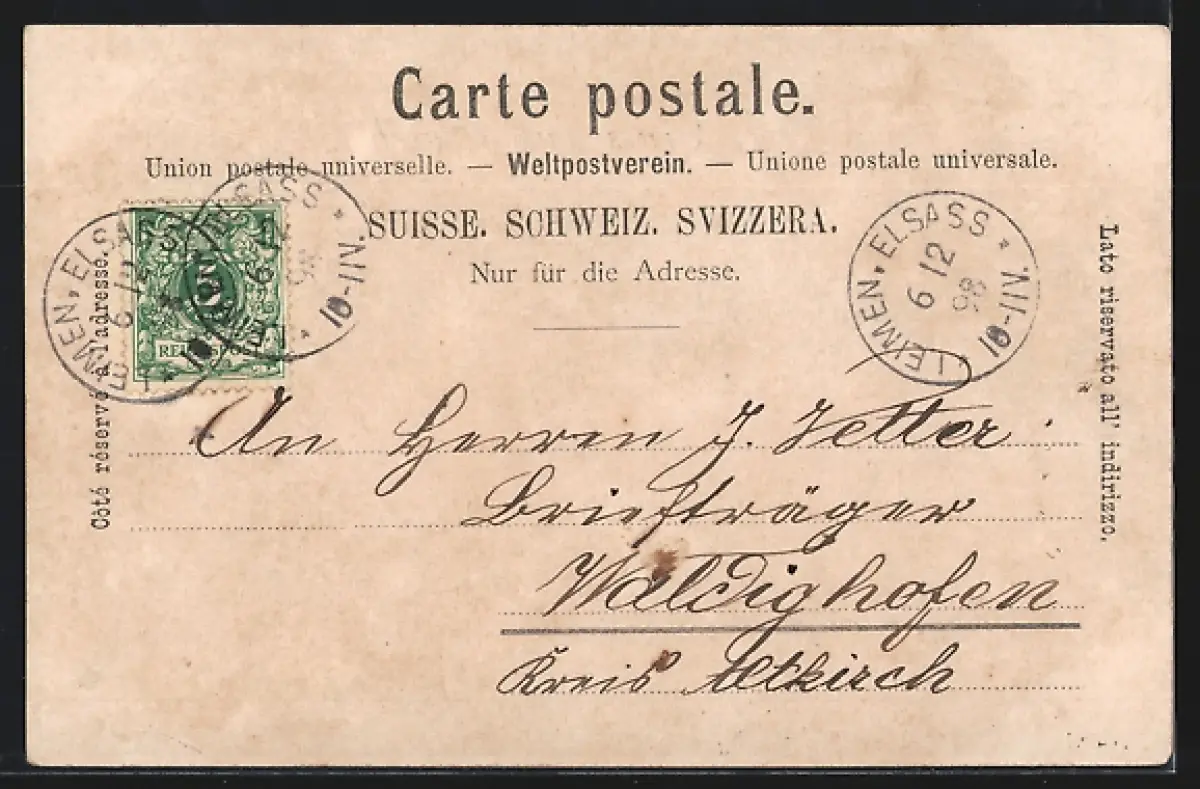 Carte postale.
Union postale universelle. — Weltpostverein. — Unione postale universale.
SUISSE. SCHWEIZ. SVIZZERA.
Nur für die Adresse.
Côté réservé à l'adresse.
Lato riservato all' indirizzo.
REICHSPOST
LEIMEN, ELSASS
6 12
98
10-11V.
LEIMEN, ELSASS
6 12
98
10-11V.
LEIMEN, ELSASS
6 12
98
10-11V.
An Herren J. Jetter
Briefträger
Waldighofen
Kreis Altkirch